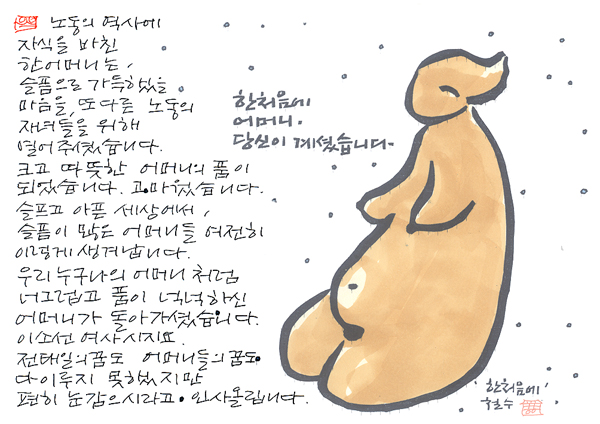 노동의 역사에
자식을 바친
한어머니는,
슬픔으로 가득하였을
마음을, 또다른 노동의
자녀들을 위해
열어주셨습니다.
크고 따뜻한 어머니의 품이
되었습니다. 고마웠습니다.
슬프고 아픈 세상에서,
슬픔이 많은 어머니들 여전히
이렇게 생겨납니다.
우리 누구나의 어머니처럼
너그럽고 품이 넉넉하신
어머니가 돌아가셨습니다.
이소선 여사시지요.
전태일의꿈도 어머니들의꿈도
다 이루지 못했지만
편히 눈감으시라고. 인사올립니다.
한처음에
어머니.
당신이 계셨습니다.
'한처음에'
철수